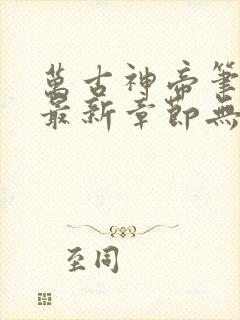 萬古神帝筆
最新章節無
至同